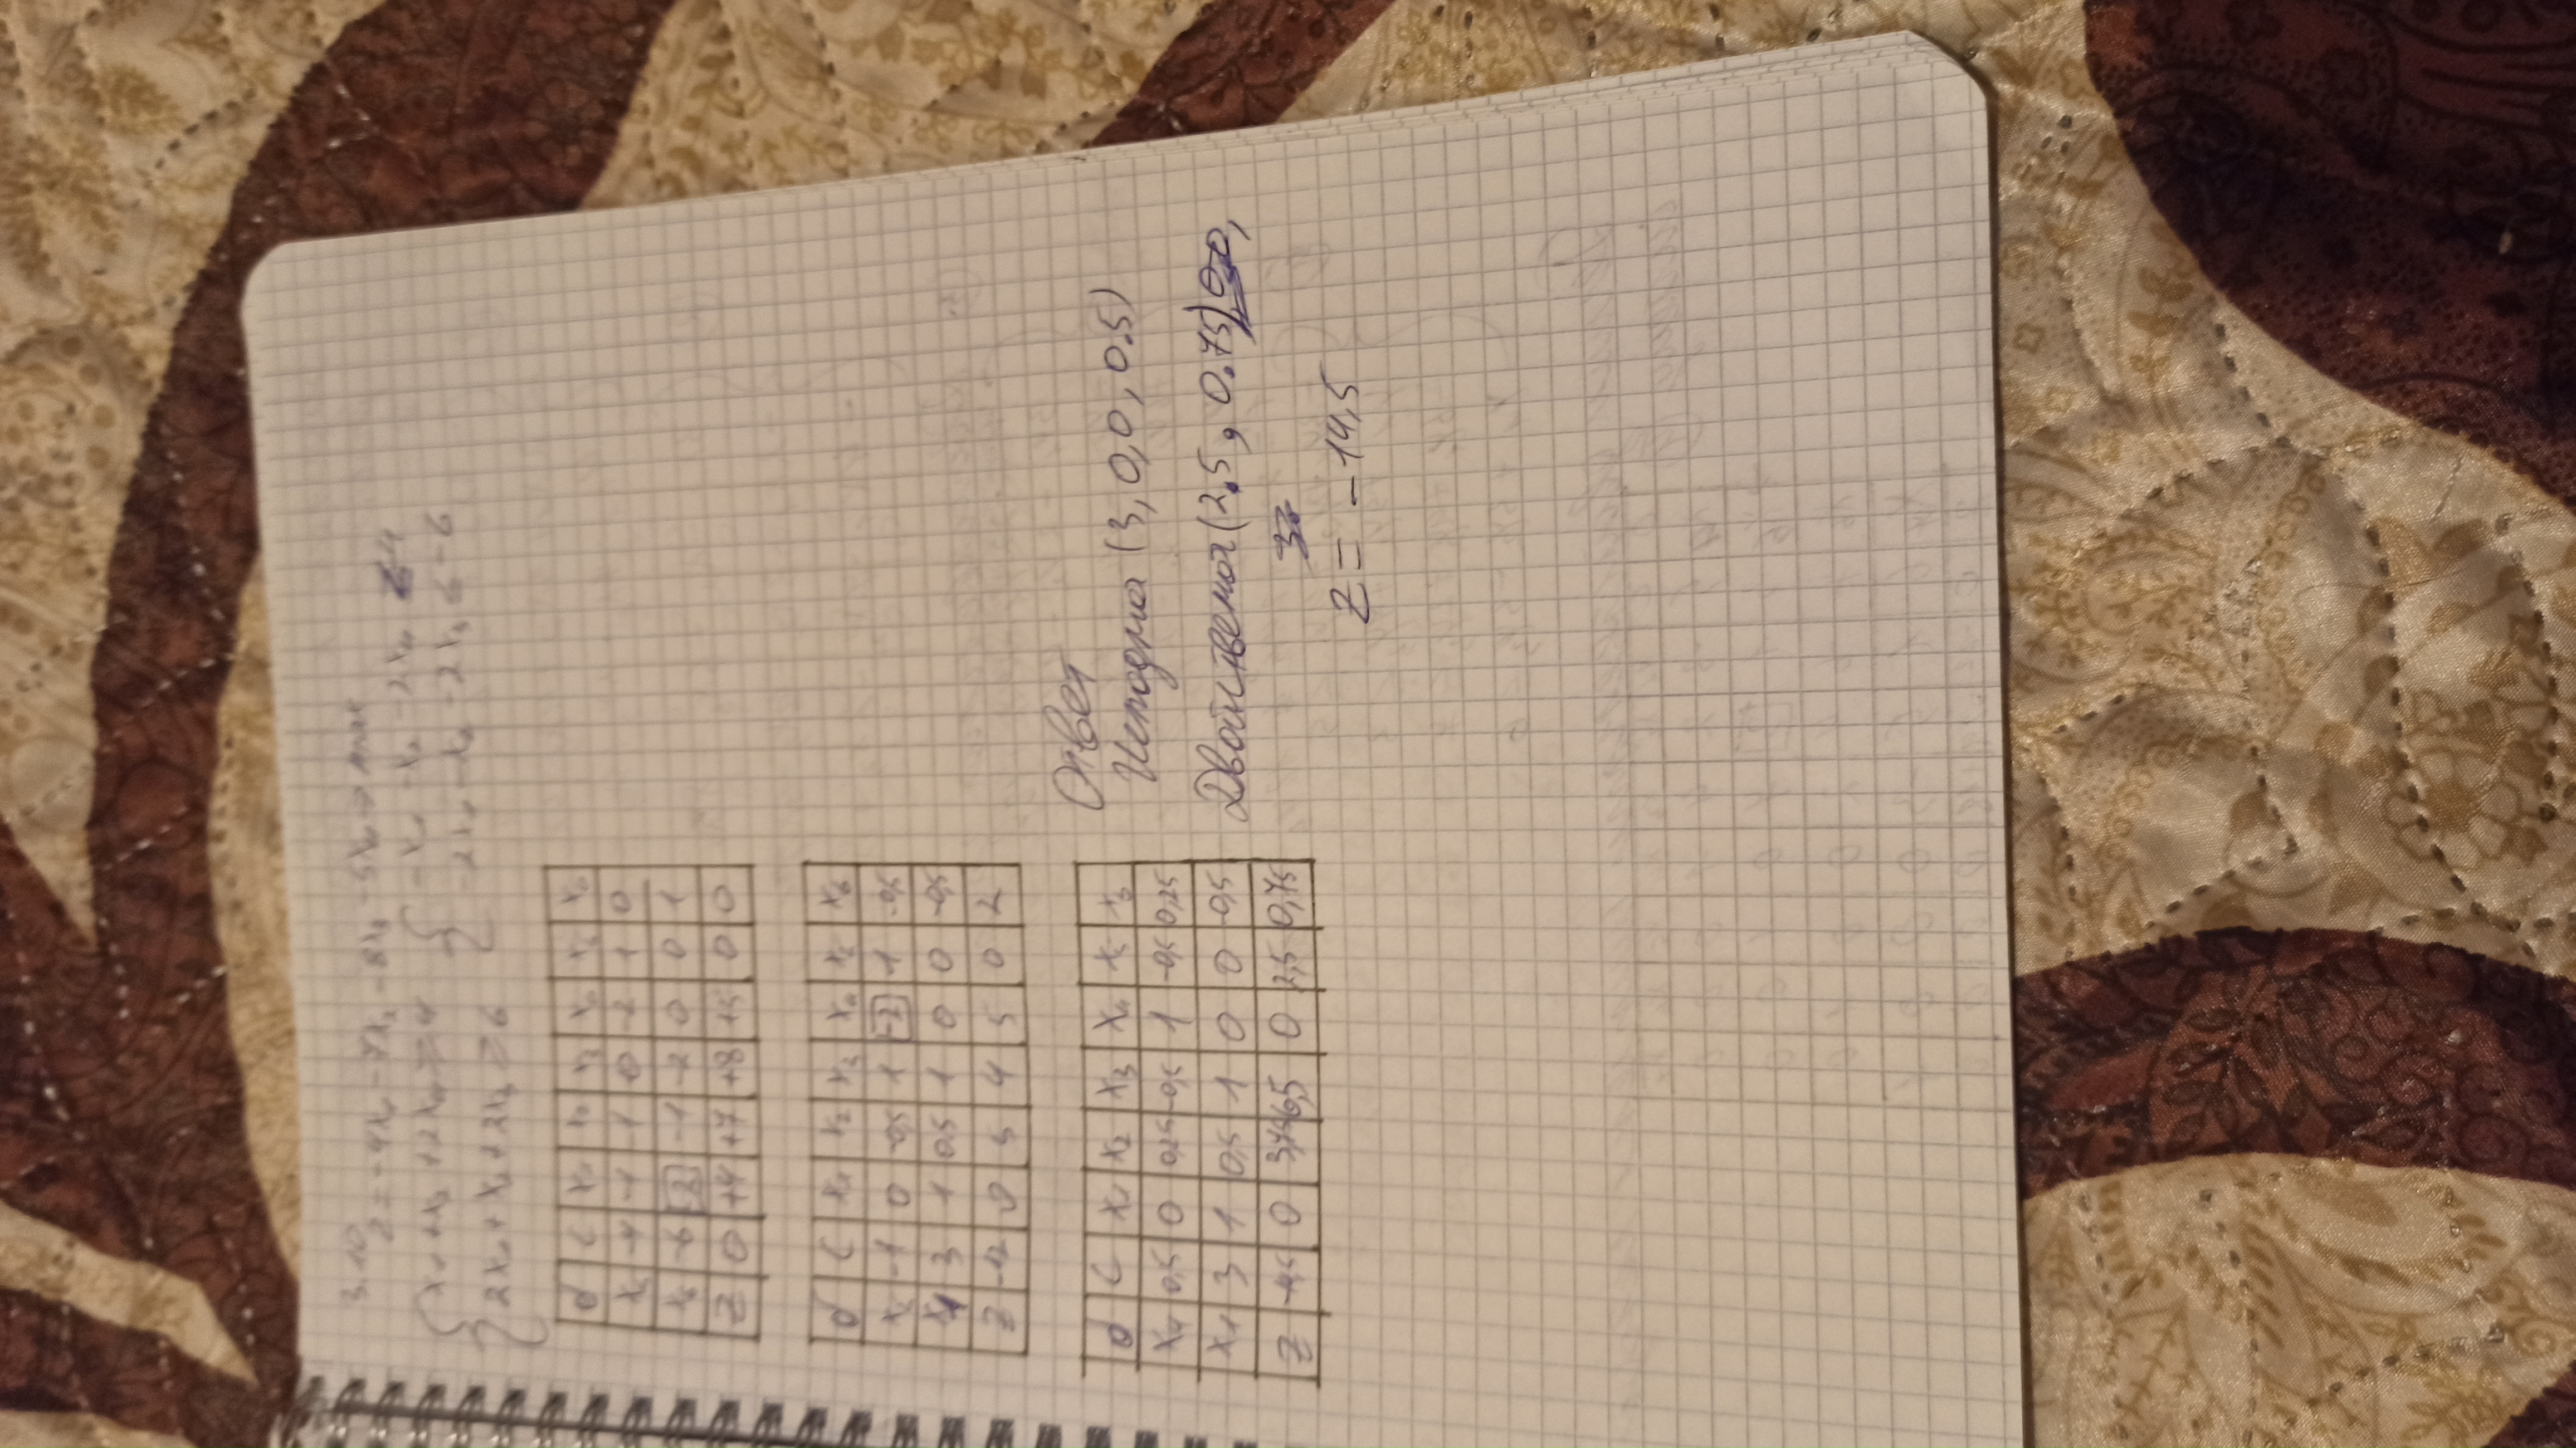 3.10
Z = -4x₁ - 7x₂ - 8x₃ - 5x₄ → max
x₁ + x₂ + 2x₄ ≥ 4
-x₁ - x₂ - 2x₄ ≤ -4
2x₁ + x₂ + 2x₃ ≥ 6
-2x₁ - x₂ - 2x₃ ≤ -6
б C x₁ x₂ x₃ x₄ x₅ x₆
x₅ -4 -1 -1 0 -2 1 0
x₆ -6 -2 -1 -2 0 0 1
Z 0 +4 +7 +8 +5 0 0
б C x₁ x₂ x₃ x₄ x₅ x₆
x₅ -1 0 -0,5 1 -2 1 -0,5
x₁ 3 1 0,5 1 0 0 -0,5
Z -12 0 5 4 5 0 2
б C x₁ x₂ x₃ x₄ x₅ x₆
x₄ 0,5 0 0,25 -0,5 1 -0,5 0,25
x₁ 3 1 0,5 1 0 0 -0,5
Z -14,5 0 3,75 6,5 0 2,5 0,75
Ответ
(3, 0, 0, 0.5)
(2.5, 0.75)
Z = -14,5